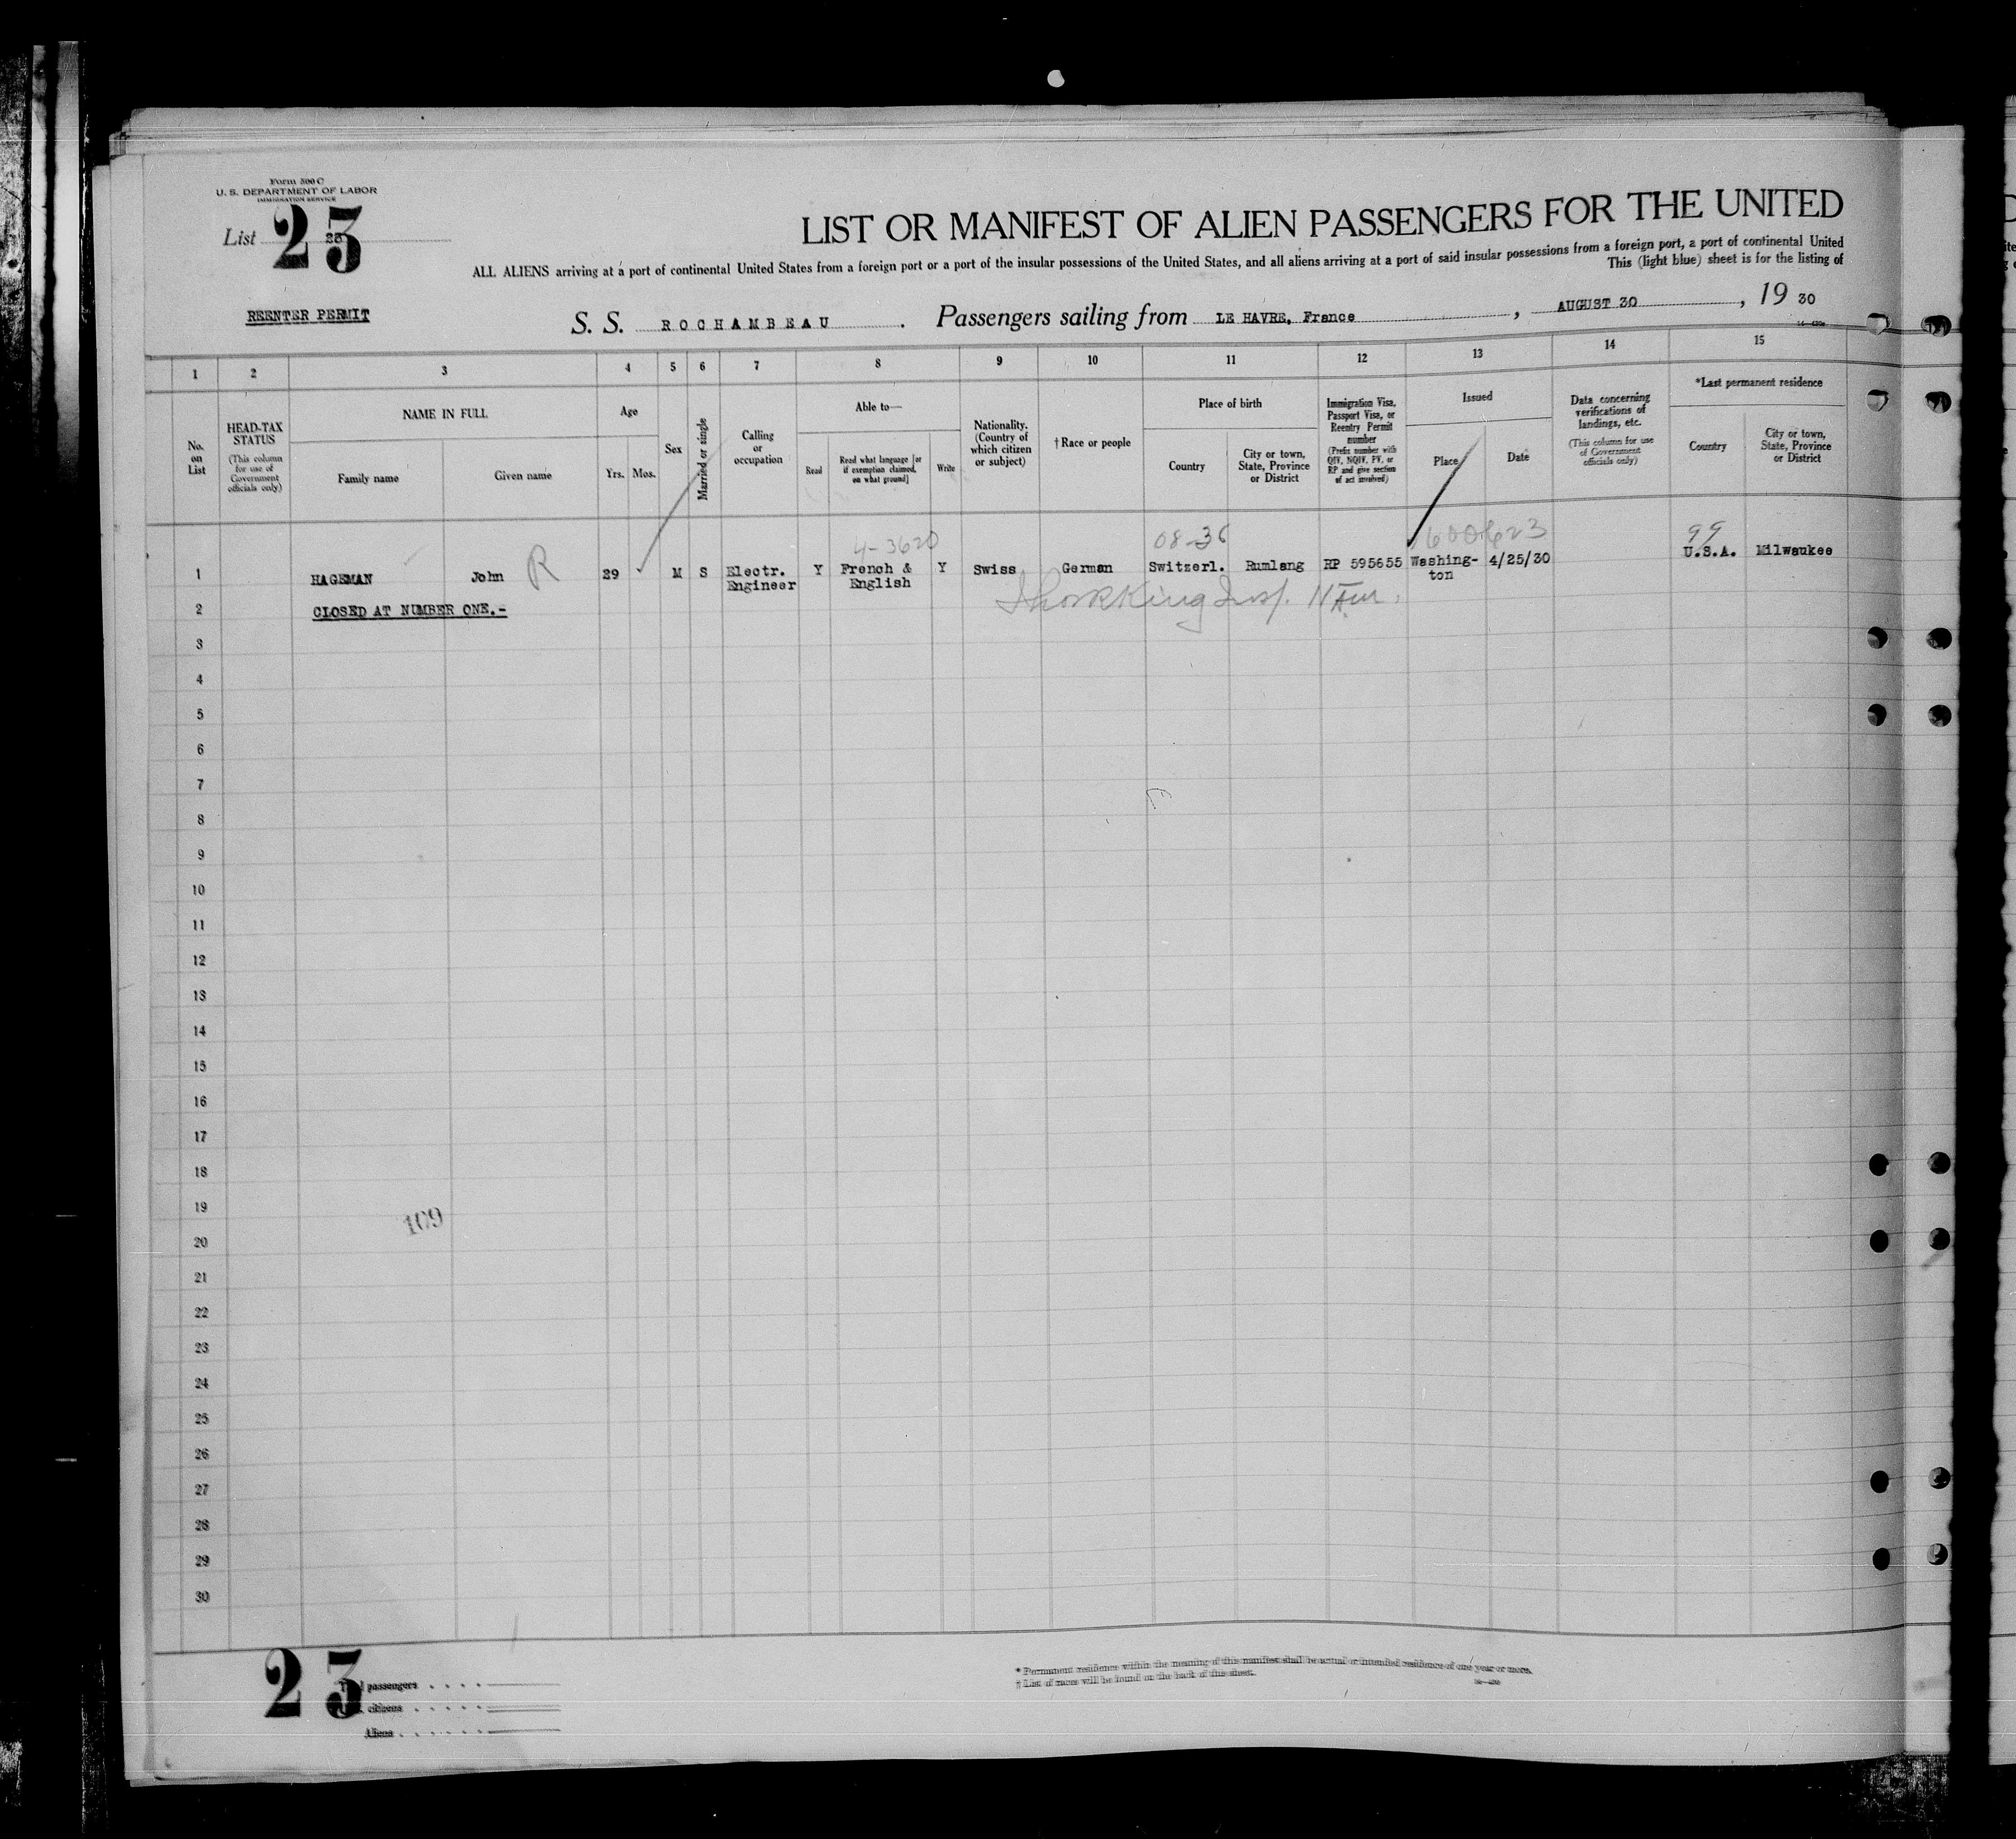 Form 500 C
U. S. DEPARTMENT OF LABOR
IMMIGRATION SERVICE
List 23
25
LIST OR MANIFEST OF ALIEN PASSENGERS FOR THE UNITED
ALL ALIENS arriving at a port of continental United States from a foreign port or a port of the insular possessions of the United States, and all aliens arriving at a port of said insular possessions from a foreign port, a port of continental United
This (light blue) sheet is for the listing of
REENTER PERMIT
S. S. ROCHAMBEAU . Passengers sailing from LE HAVRE, France , AUGUST 30 , 19 30
1 2 3 4 5 6 7 8 9 10 11 12 13 14 15
No. on List
HEAD-TAX STATUS (This column for use of Government officials only)
NAME IN FULL
Family name Given name
Age
Yrs. Mos.
Sex
Married or single
Calling or occupation
Able to—
Read
Read what language [or if exemption claimed, on what ground]
Write
Nationality. (Country of which citizen or subject)
†Race or people
Place of birth
Country
City or town, State, Province or District
Immigration Visa, Passport Visa, or Reentry Permit number (Prefix number with QIV, NQIV, PV, or RP and give section of act involved)
Issued
Place Date
Data concerning verifications of landings, etc. (This column for use of Government officials only)
*Last permanent residence
Country
City or town, State, Province or District
4-3620 08-36 600623 99
1 HAGEMAN John R 29 M S Electr. Engineer Y French & English Y Swiss German Switzerl. Rumlang RP 595655 Washington 4/25/30 U.S.A. Milwaukee
2 CLOSED AT NUMBER ONE.-
3
4
5
6
7
8
9
10
11
12
13
14
15
16
17
18
19
109
20
21
22
23
24
25
26
27
28
29
30
23
passengers
citizens
Aliens
* Permanent residence within the meaning of this manifest shall be actual or intended residence of one year or more.
† List of races will be found on the back of this sheet.